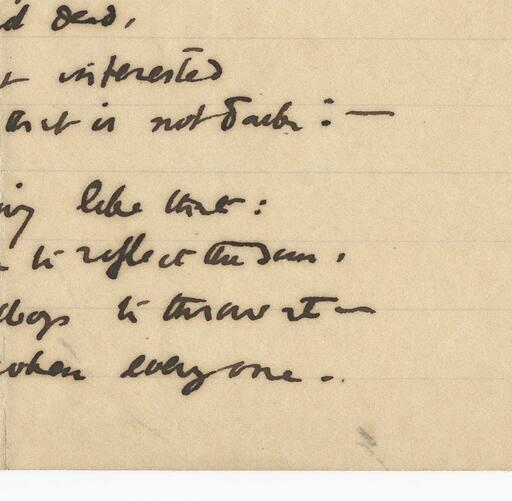 dead,
interested
that is not dark: —
like that:
to reflect the sun.
to throw at —
when everyone.